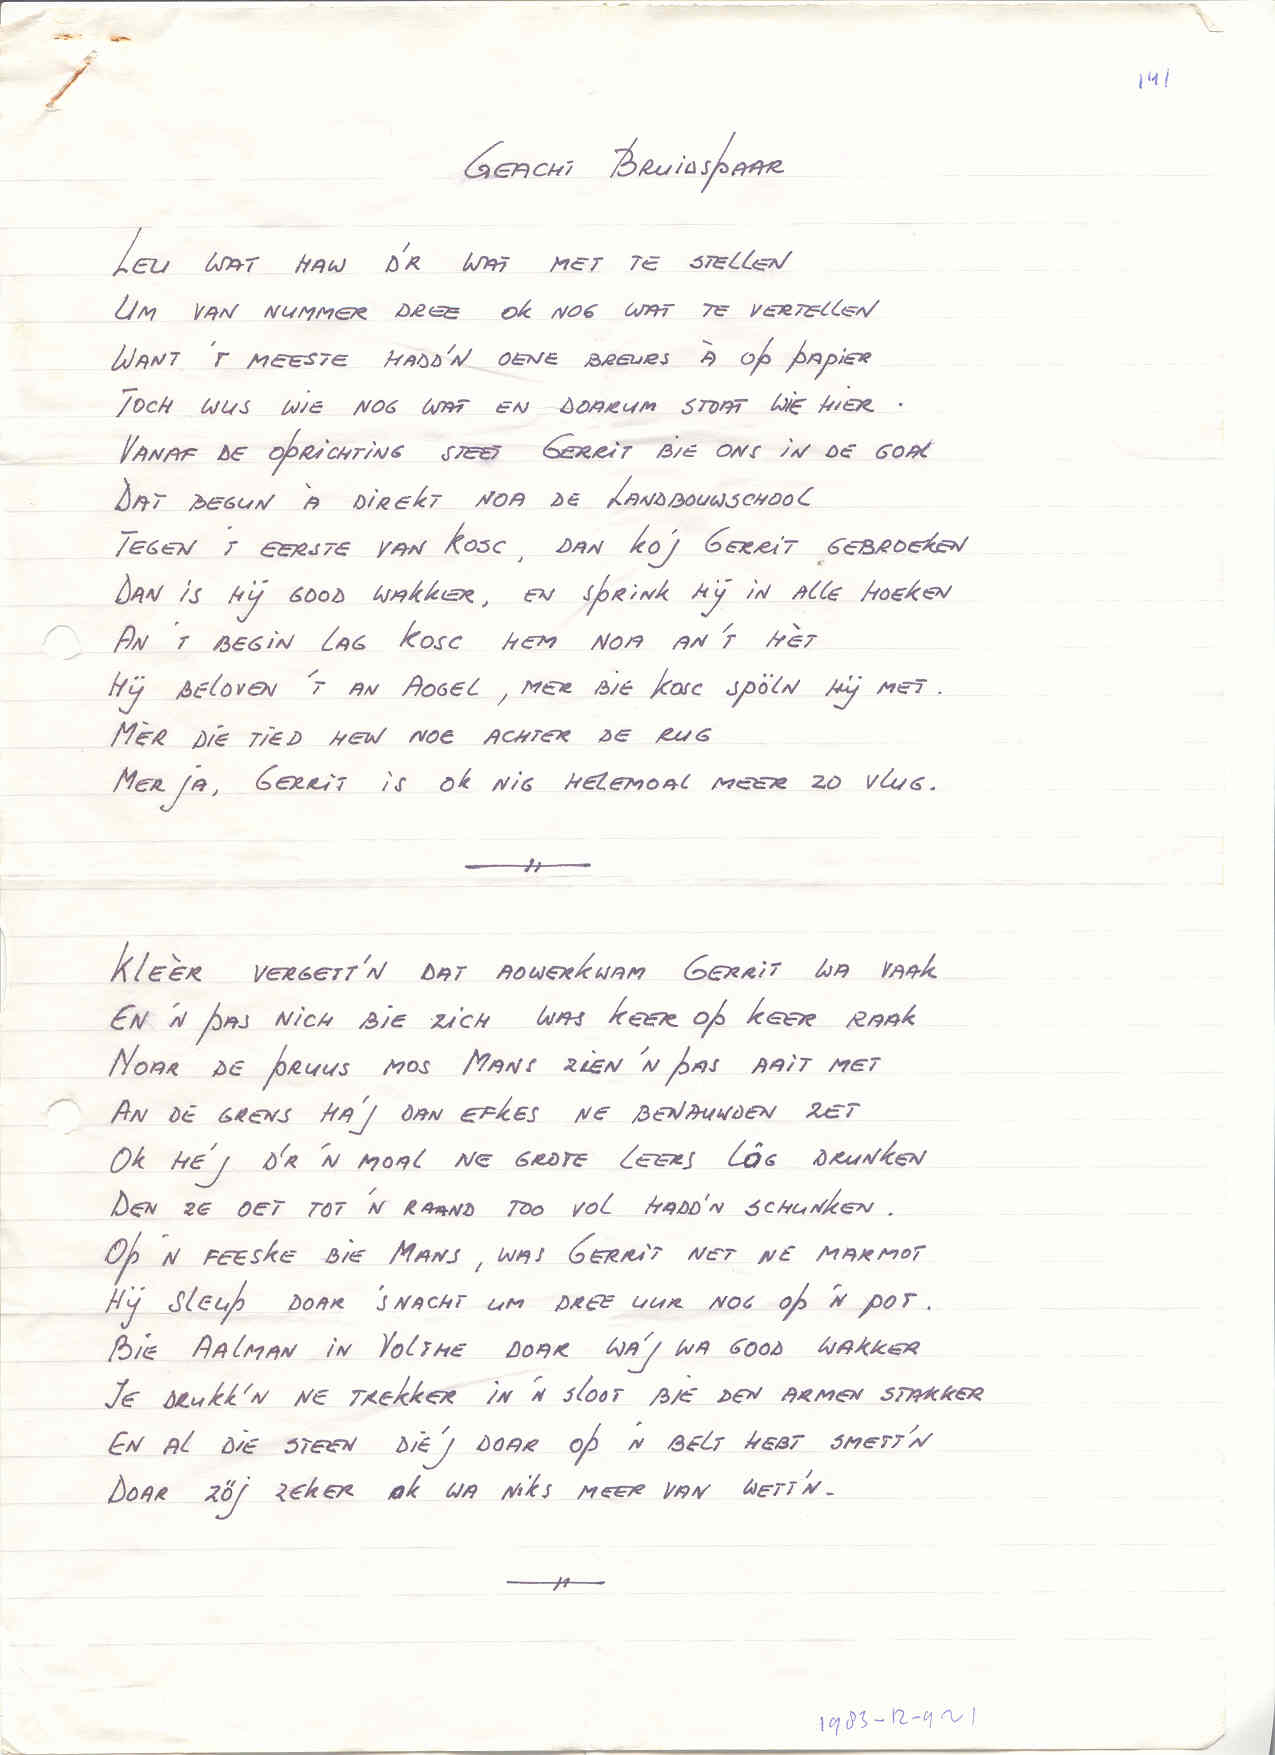 141
Geacht Bruidspaar
Leu wat haw d'r wat met te stellen
Um van nummer dree ok nog wat te vertellen
Want 't meeste hadd'n oene breurs à op papier
Toch wus wie nog wat en doarum stoat wie hier.
Vanaf de oprichting steet Gerrit bie ons in de goal
Dat begun à direkt noa de Landbouwschool
Tegen 't eerste van Kosc, dan ko'j Gerrit gebroeken
Dan is hij good wakker, en sprink hij in alle hoeken
An 't begin lag Kosc hem noa an 't hèt
Hij beloven 't an Aogel, mer bie Kosc spöln hij met.
Mèr die tied hew noe achter de rug
Mer ja, Gerrit is ok nig helemoal meer zo vlug.
Kleèr vergett'n dat aowerkwam Gerrit wa vaak
En 'n pas nich bie zich was keer op keer raak
Noar de pruus mos Mans zien 'n pas aait met
An de grens ha'j dan efkes ne benauwden zet
Ok hé'j d'r 'n moal ne grote leers lôg drunken
Den ze oet tot 'n raand too vol hadd'n schunken.
Op 'n feeske bie Mans, was Gerrit net ne marmot
Hij sleup doar 's nacht um dree uur nog op 'n pot.
Bie Aalman in Volthe doar wa'j wa good wakker
Je drukk'n ne trekker in 'n sloot bie den armen stakker
En al die steen die'j doar op 'n belt hebt smett'n
Doar zöj zeker ok wa niks meer van wett'n.
1983-12-921